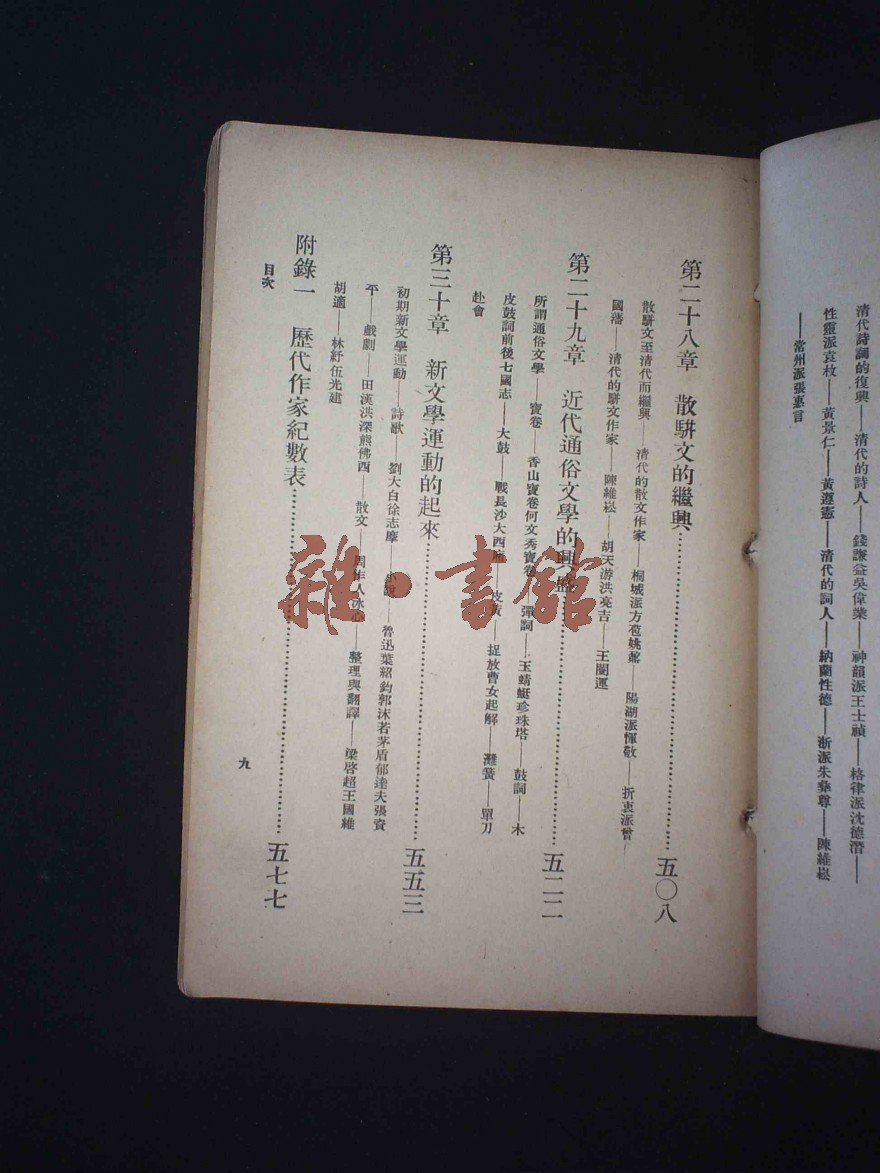 清代詩詞的復興——清代的詩人——錢謙益吳偉業——神韻派王士禎——格律派沈德潛——
性靈派袁枚——黃景仁——黃遵憲——清代的詞人——納蘭性德——浙派朱彝尊——陳維崧
——常州派張惠言
第二十八章 散駢文的繼興…………五〇八
散駢文至清代而繼興——清代的散文作家——桐城派方苞姚鼐——陽湖派惲敬——折衷派曾
國藩——清代的駢文作家——陳維崧——胡天游洪亮吉——王闓運
第二十九章 近代通俗文學的興盛…………五二二
所謂通俗文學——寶卷——香山寶卷何文秀寶卷——彈詞——玉蜻蜓珍珠塔——鼓詞——木
皮鼓詞前後七國志——大鼓——戰長沙大西廂——皮黃——捉放曹女起解——灘簧——單刀
赴會
第三十章 新文學運動的起來…………五五三
初期新文學運動——詩歌——劉大白徐志摩——小說——魯迅葉紹鈞郭沫若茅盾郁達夫張資
平——戲劇——田漢洪深熊佛西——散文——周作人冰心——整理與翻譯——梁啓超王國維
胡適——林紓伍光建
附錄一 歷代作家紀數表…………五七七
目次
九
雜·書館